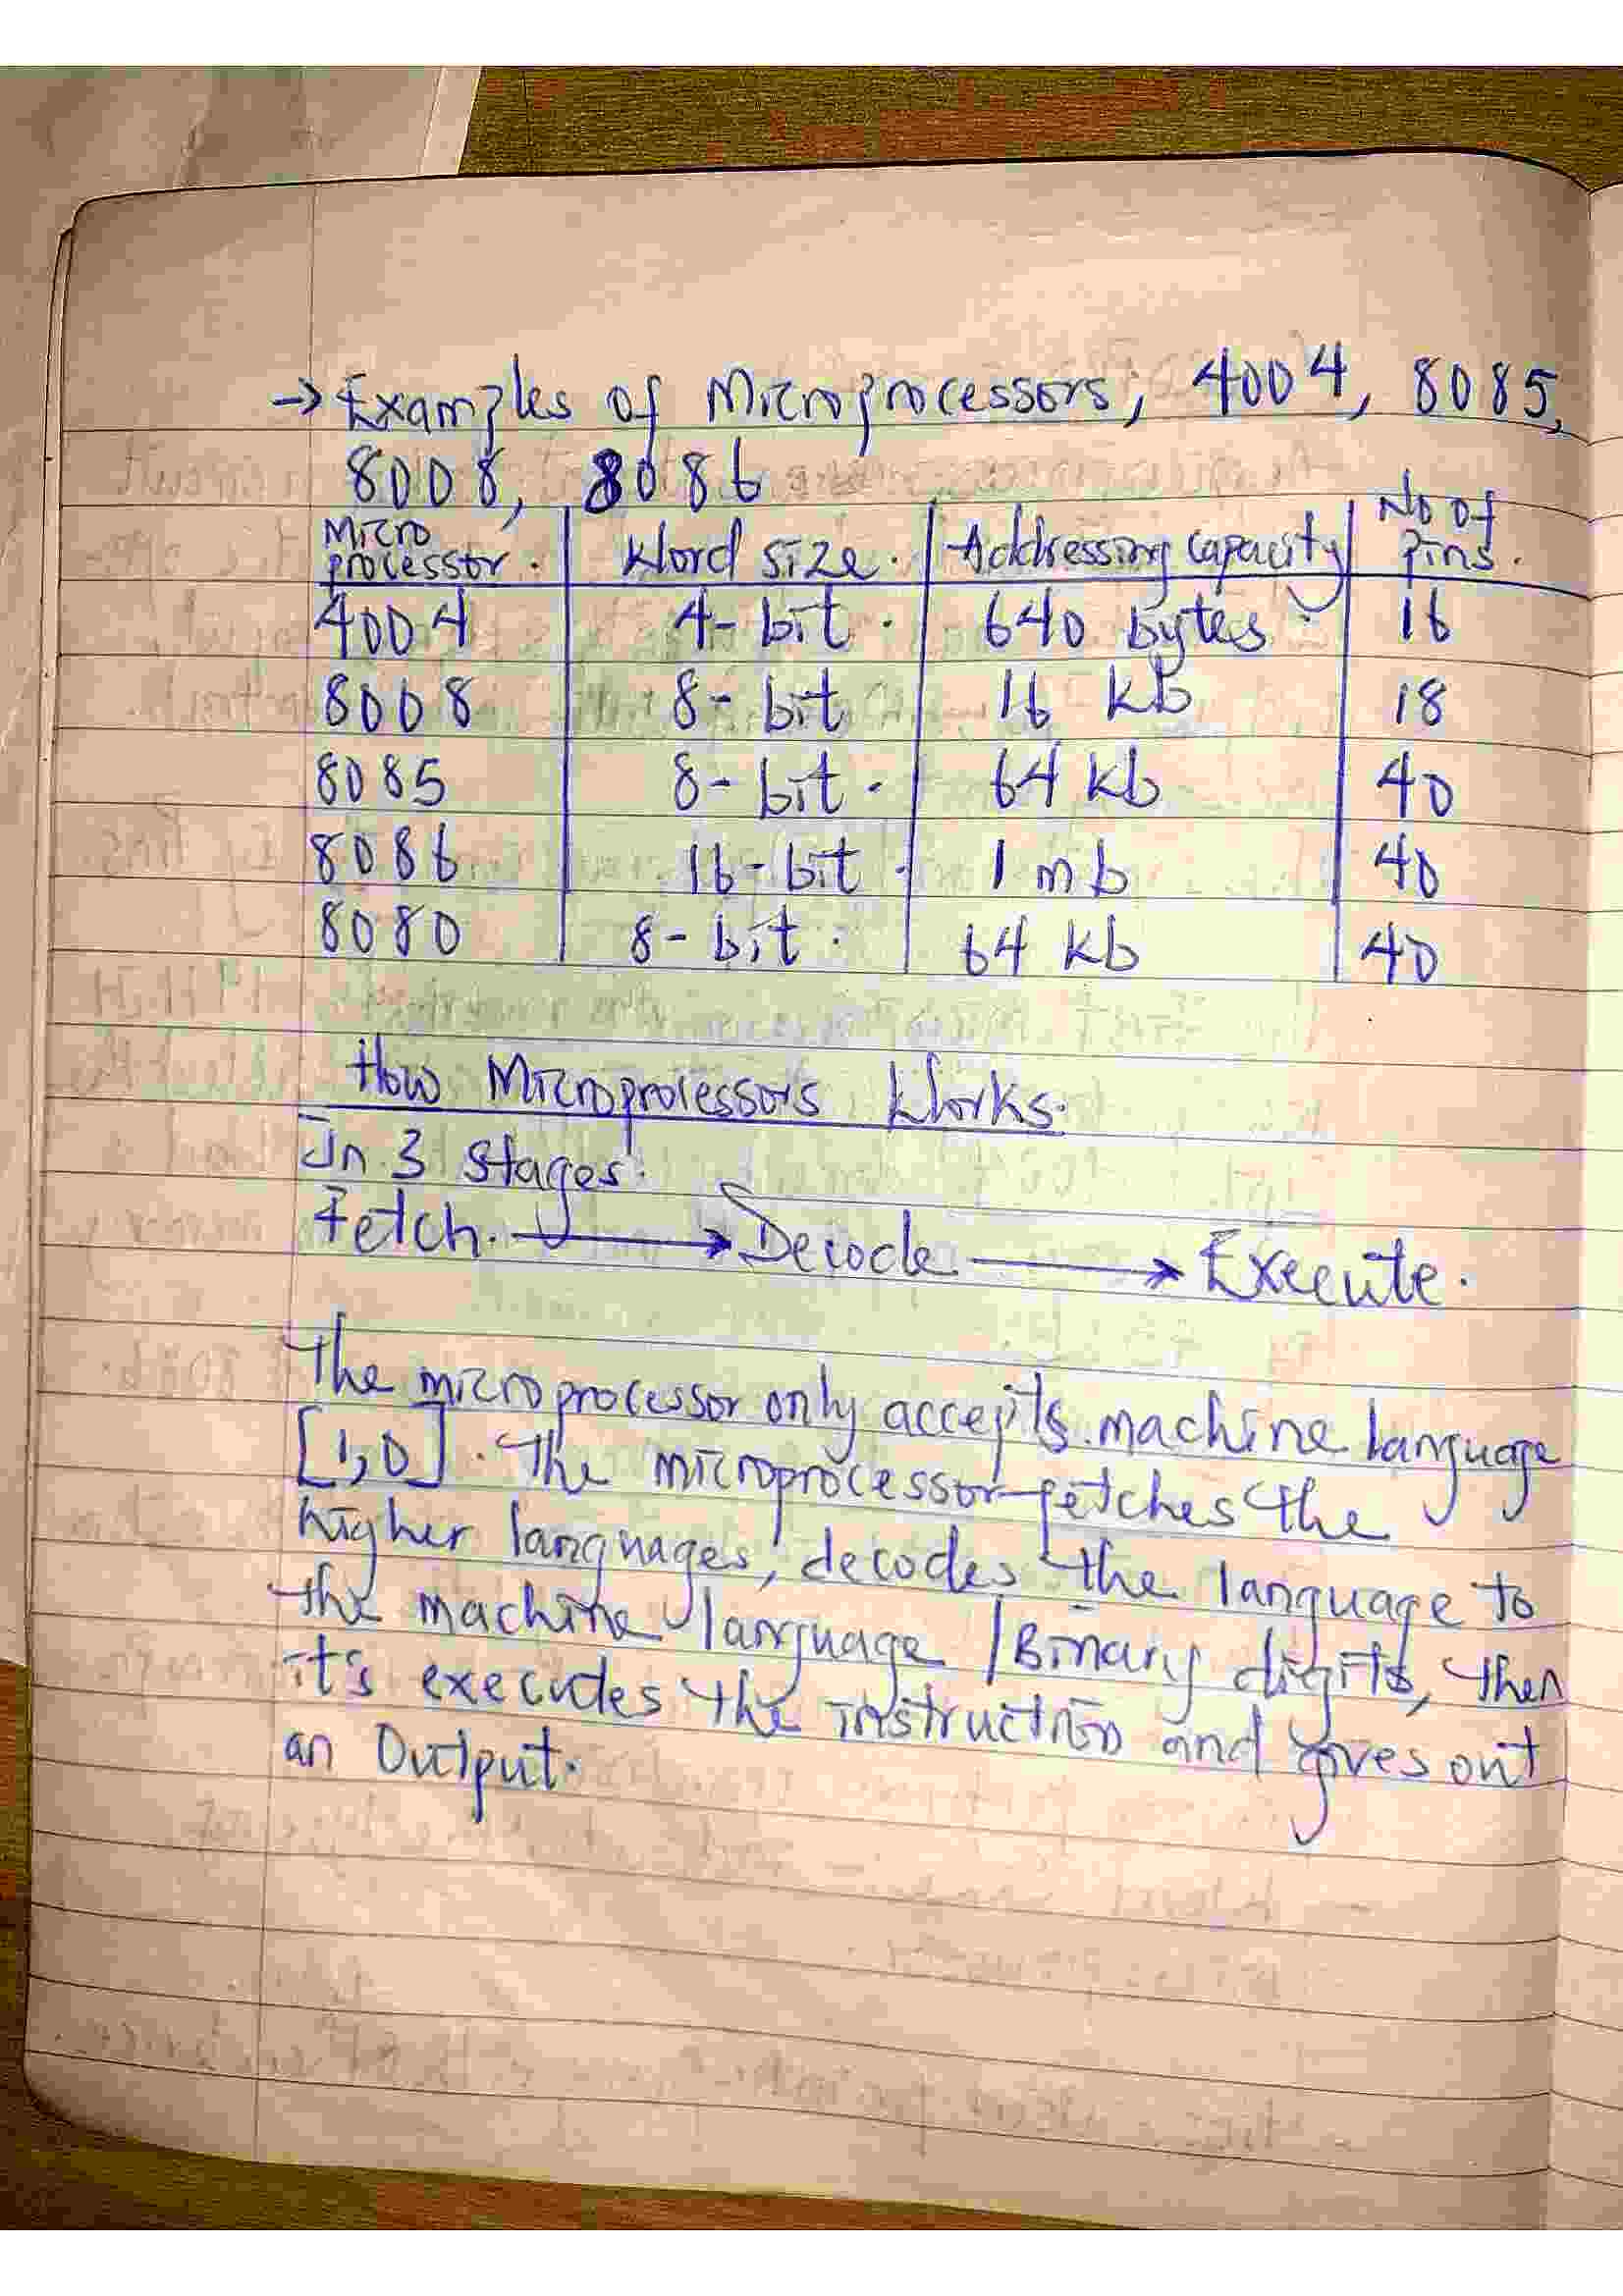 → Examples of Microprocessors, 4004, 8085,
8008, 8086
Micro processor. | Word size. | Addressing capacity | No of Pins.
4004 | 4-bit. | 640 bytes. | 16
8008 | 8-bit | 16 kb | 18
8085 | 8-bit. | 64 kb | 40
8086 | 16-bit. | 1 mb | 40
8080 | 8-bit. | 64 kb | 40
How Microprocessors Works.
In 3 stages.
Fetch. → Decode → Execute.
The microprocessor only accepts machine language
[1,0]. The microprocessor fetches the
higher languages, decodes the language to
the machine language /Binary digits, then
it's executes the instruction and gives out
an Output.